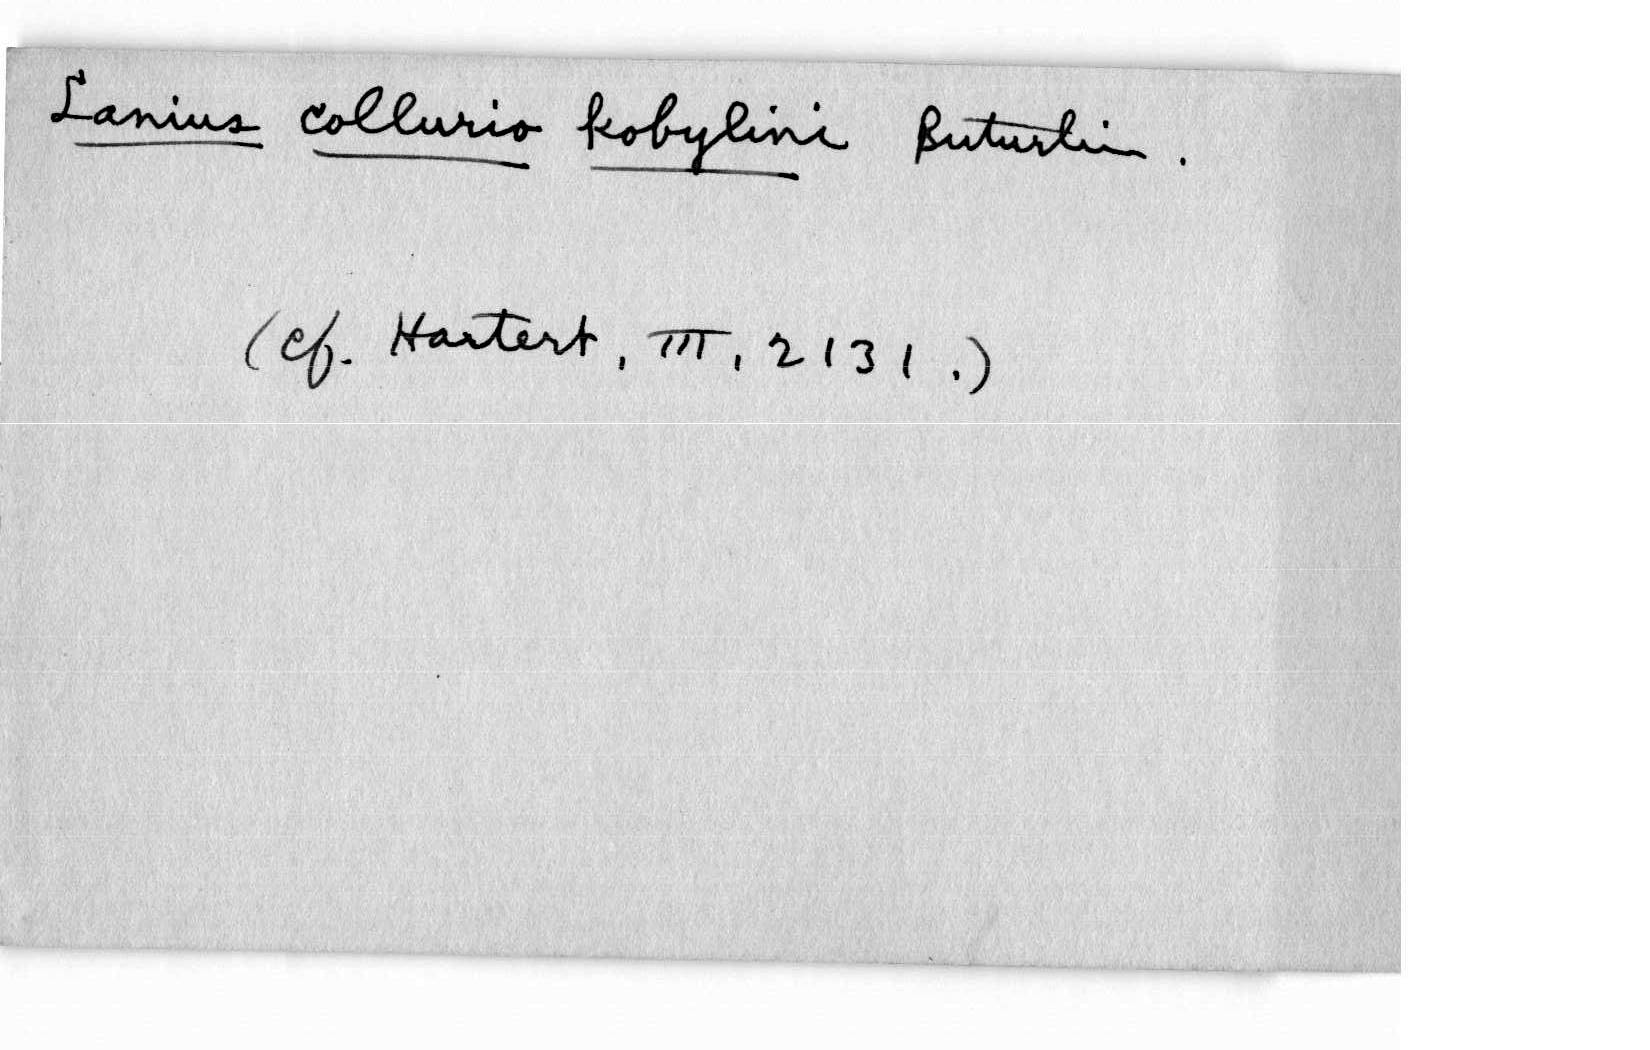 Lanius collurio kobylini Buturlin.
(cf. Hartert, III, 2131.)